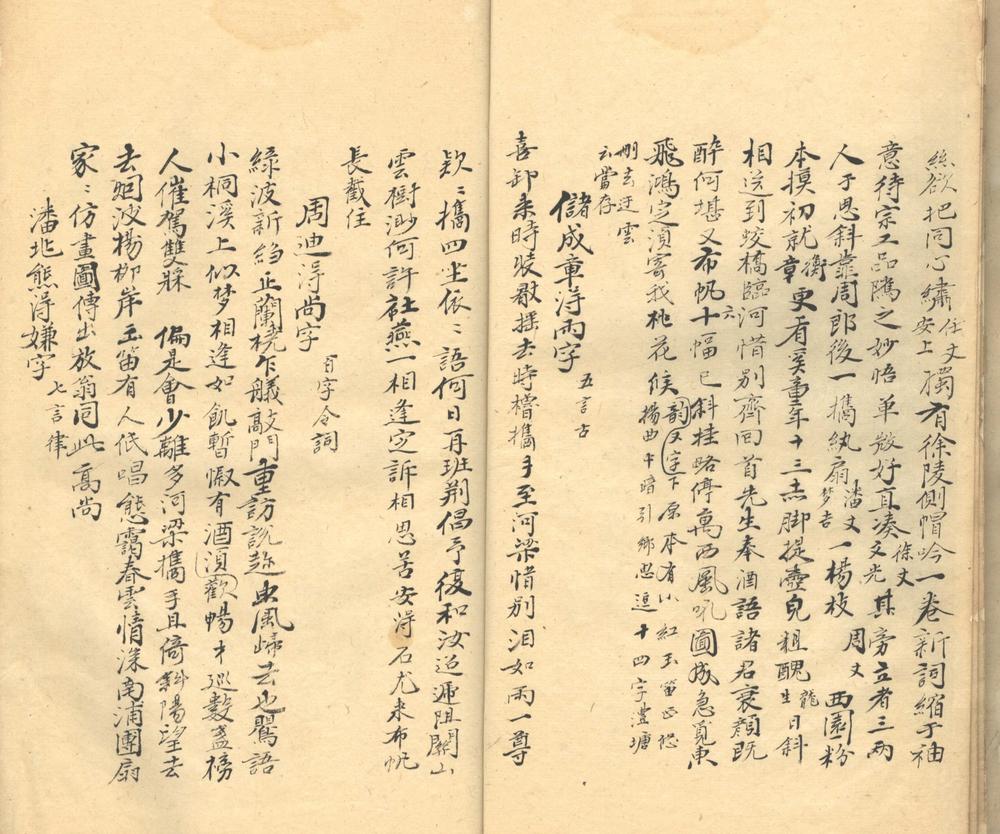 絲欲把同心繡任丈安上獨有徐陵側帽吟一卷新詞縮于袖
意待宗工品隲之妙悟單微好互湊徐丈文光其旁立者三兩
人于思斜靠周郎後一攜紈扇潘丈夢吉一楊枝周丈西園粉
本摸初就衡章更看奚童年十三赤脚提壺皃粗醜龍生日斜
相送到蛟橋臨河惜別齊回首先生奉酒語諸君衰顏既
醉何堪又布帆六十幅已斜挂略停萬西風吼圖成急覓東
飛鴻定須寄我桃花候楊曲中暗引鄉思逗十四字澧塘
韻又字下原本有小紅玉笛正悠
刪去迂雲
云當存
儲成章淂雨字 五言古
喜卸來時裝敢搖去時櫓攜手至河梁惜別泪如雨一尊
欵〻攜四坐依〻語何日再班荆倡予復和汝迢遞阻關山
雲樹渺何許社燕一相逢定訴相思苦安淂石尤來布帆
長截住
周迪淂尚字 百字令詞
綠波新縐正蘭橈乍艤敲門重訪說趂東風歸去也鷖語
小桐溪上似梦相逢如飢暫慰有酒須歡暢才巡數盞榜
人催駕雙槳 偏是會少離多河梁攜手且倚斜陽望去
去烟波楊柳岸玉笛有人低唱態靄春雲情深南浦團扇
家〻仿畫圖傳出放翁同此高尚
潘兆熊淂嫌字 七言律